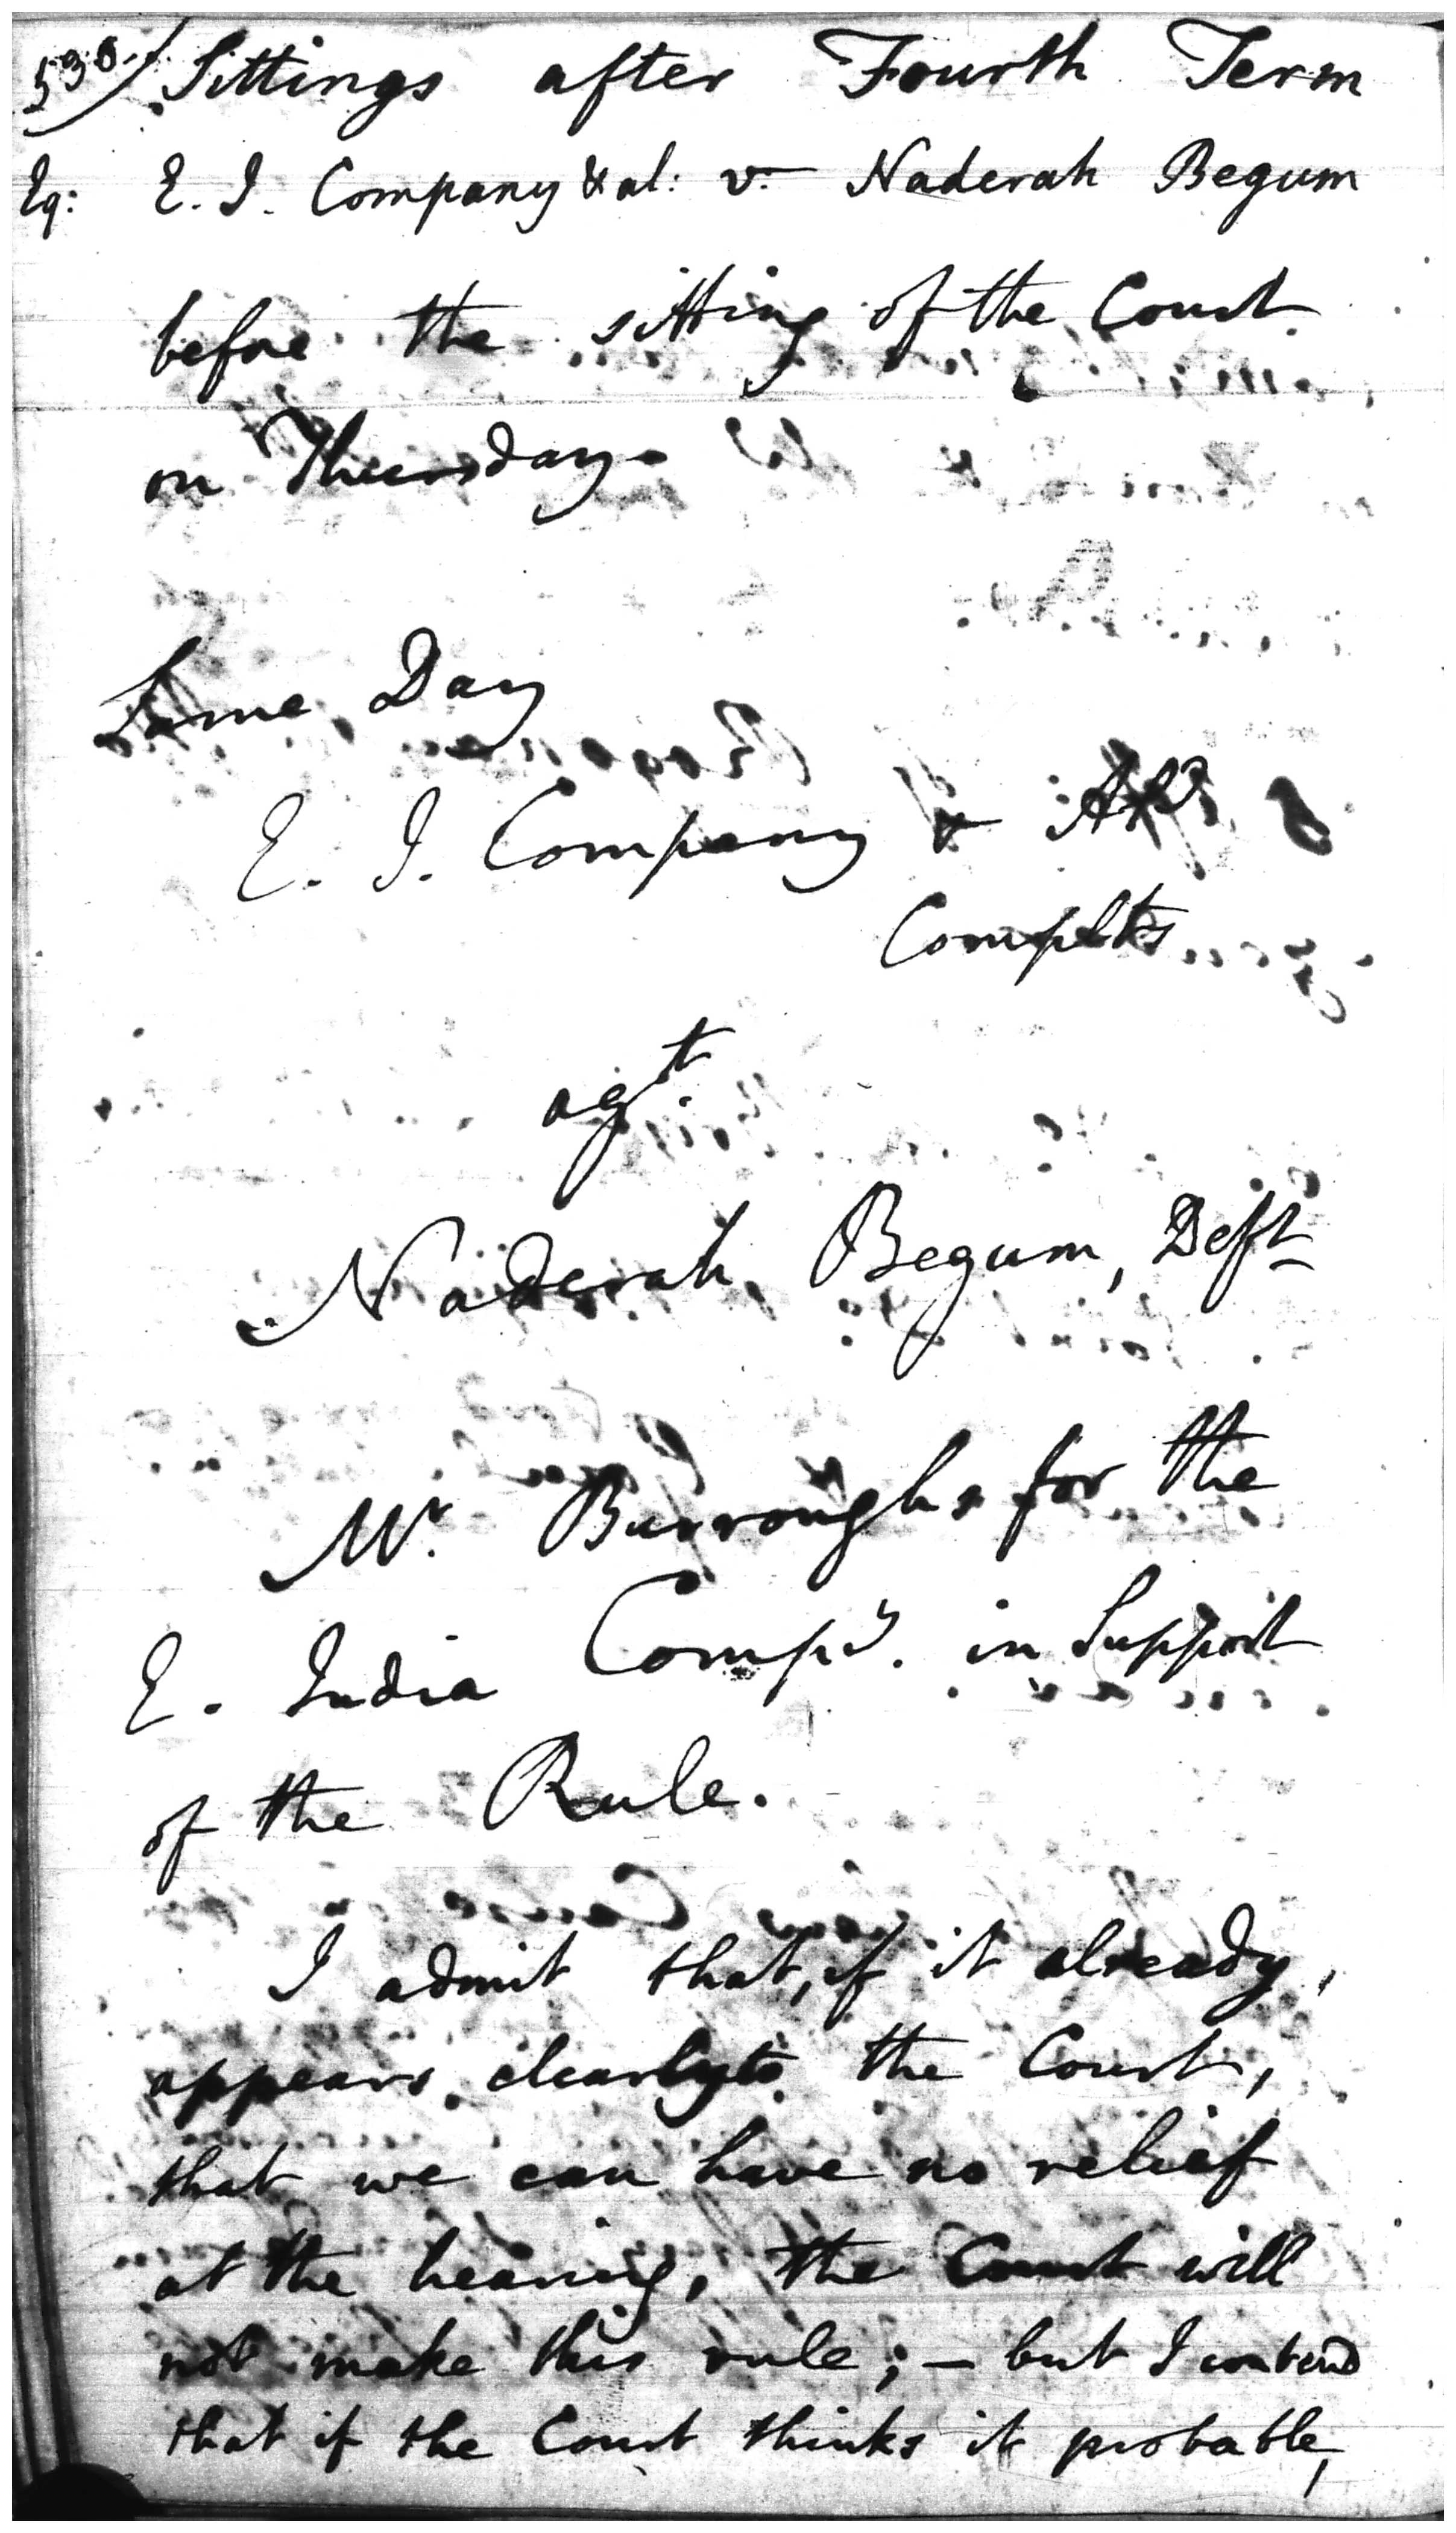 530/ Sittings after Fourth Term
Eq: E. I. Company & al: v. Naderah Begum
before the sitting of the Court
on Thursday.
Same Day
E. I. Company &
Complts
agt.
Naderah Begum, Deft
Mr. Burroughs for the
E. India Compy. in Support
of the Rule.
I admit that, if it already
appears clearly to the Court,
that we can have no relief
at the hearing, the Court will
not make this rule; – but I contend
that if the Court thinks it probable,